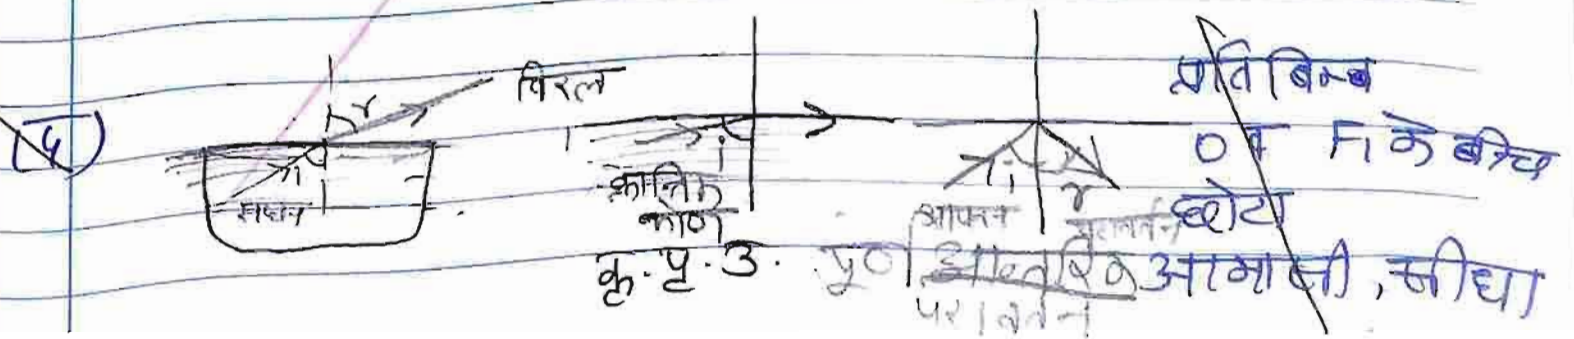 (4)
r विरल
i
सघन
i
क्रान्तिक
कोण
कृ. पृ. उ.
i r
आपतन परावर्तन
पूर्ण आन्तरिक
परावर्तन
प्रतिबिम्ब
O व F₁ के बीच
छोटा
आभासी, सीधा